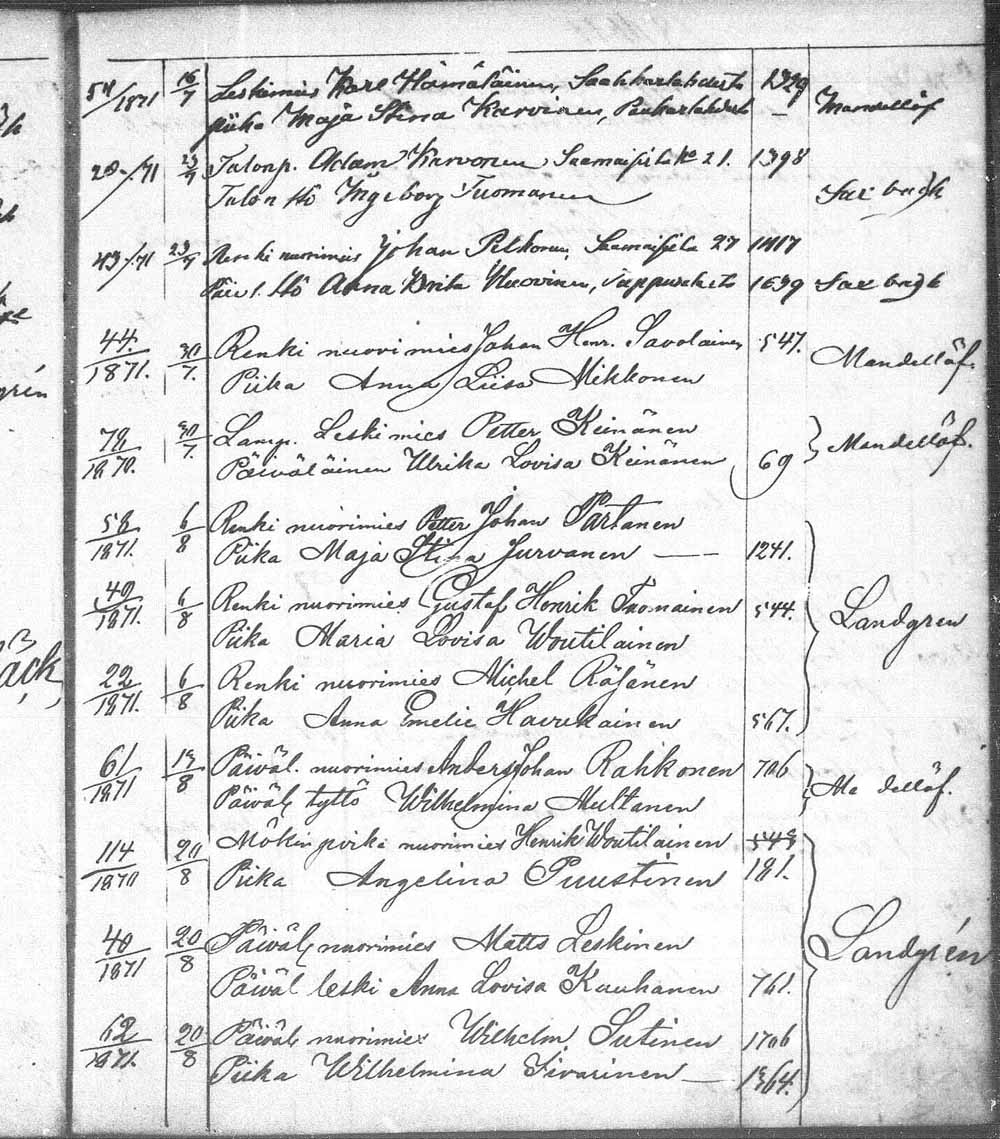 58/1871 16/7 Leskimies Karl Hämäläinen, 1329 Mandellöf
piika Maja Stina Karvinen, —
28/71 23/7 Talonp. Adam Karvonen Saamaisista No 21. 1398
Talon ttö Ingeborg Tuomanen
43/71 23/7 Renki nuorimies Johan Pelkonen, 27 1417
Anna Brita Vuorinen, 1639
44/1871. 30/7. Renki nuorimies Johan Henr. Savolainen 547. Mandellöf.
Piika Anna Liisa Mikkonen
72/1870. 30/7. Lamp. Leskimies Petter Keinänen Mandellöf.
Päiväläinen Ulrika Lovisa Keinänen 69
58/1871. 6/8 Renki nuorimies Petter Johan Partanen
Piika Maja Stina Jurvanen — 1241.
40/1871. 6/8 Renki nuorimies Gustaf Henrik Tuomainen 544. Landgren
Piika Maria Lovisa Woutilainen
22/1871. 6/8 Renki nuorimies Michel Räsänen
Piika Anna Emelie Havukainen 567.
61/1871 13/8 Päiväl. nuorimies Anders Johan Rahkonen 706
Päiväl tyttö Wilhelmina Multanen
114/1870 20/8 Mökin poika nuorimies Henrik Woutilainen 548
Piika Angelina Puustinen 181.
40/1871 20/8 Päiväl nuorimies Matts Leskinen Landgrén
Päiväl leski Anna Lovisa Kauhanen 761.
62/1871. 20/8 Päiväl nuorimies Wilhelm Sutinen 1706
Piika Wilhelmina Sivarinen — 1364.